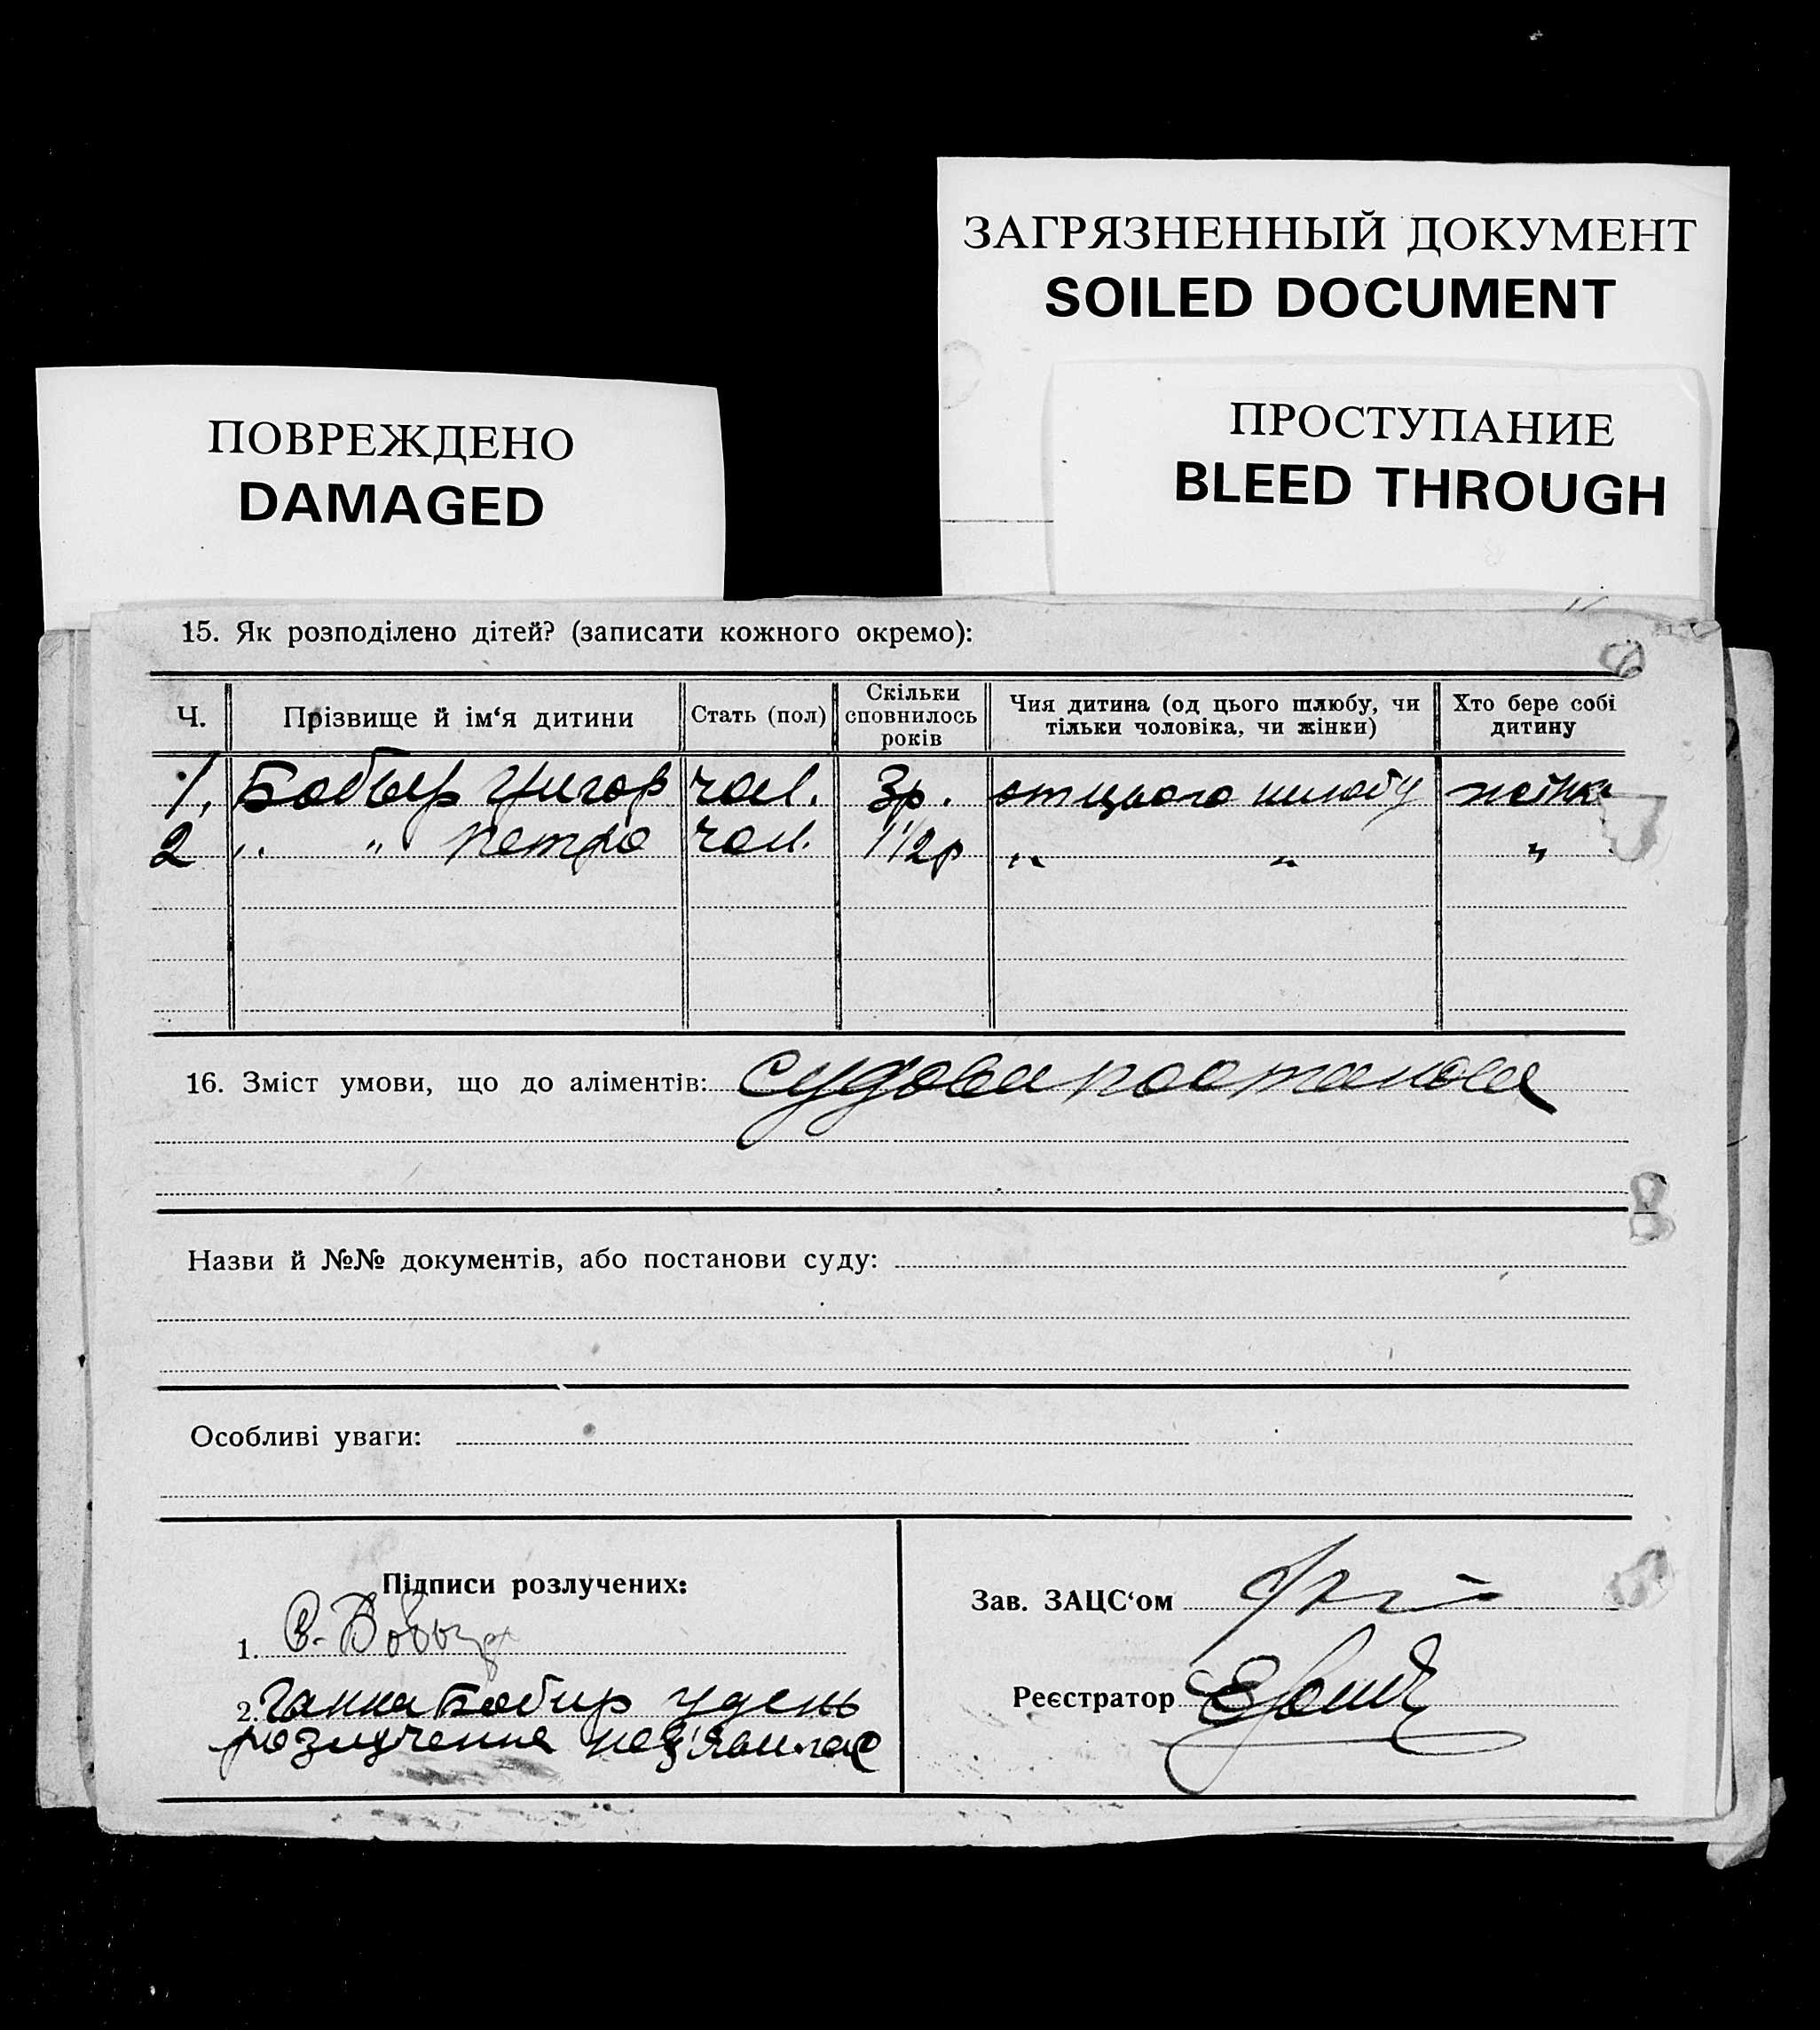 ЗАГРЯЗНЕННЫЙ ДОКУМЕНТ
SOILED DOCUMENT
ПРОСТУПАНИЕ
BLEED THROUGH
ПОВРЕЖДЕНО
DAMAGED
15. Як розподілено дітей? (записати кожного окремо):
Ч. Прізвище й ім‘я дитини Стать (пол) Скільки сповнилось років Чия дитина (од цього шлюбу, чи тільки чоловіка, чи жінки) Хто бере собі дитину
1. Бобыр Григор чол. 3р. от цього шлюбу жінка
2 " " Петро чол. 1 1/2р " " "
16. Зміст умови, що до аліментів: Судова постанова
Назви й №№ документів, або постанови суду:
Особливі уваги:
Підписи розлучених:
1. С. Бобыр
2. Ганна Бобир у день
розлучення не з'явилас
Зав. ЗАЦС‘ом
Реєстратор